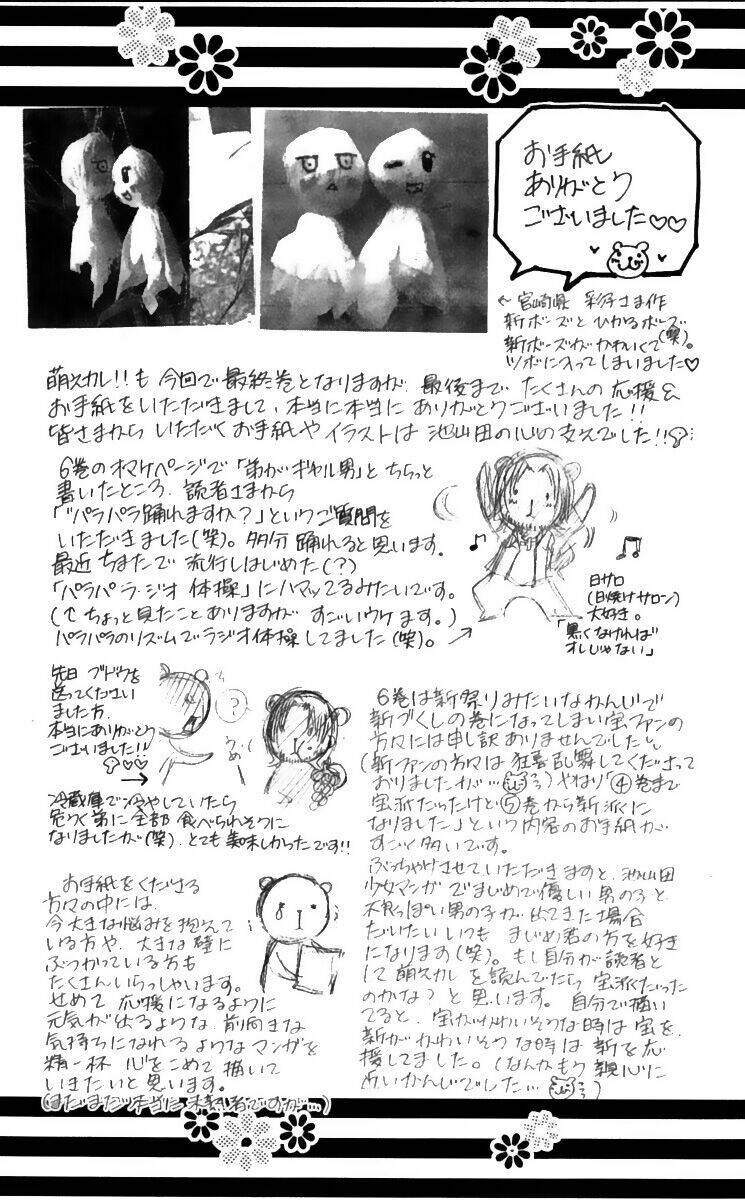 お手紙
ありがとう
ございました♡♡
←宮崎県 彩子さま作
新ボーズとひかるボーズ
新ボーズがかわいくて(笑)。
ツボに入ってしまいました♡
萌えカレ!!も今回で最終巻となりますが、最後までたくさんの応援&
お手紙をいただきまして、本当に本当にありがとうございました!!
皆さまからいただくお手紙やイラストは池山田の心の支えでした!!
6巻のオマケページで「弟がギャル男」とちらっと
書いたところ、読者さまから
「“パラパラ踊れますか?」というご質問を
いただきました(笑)。多分踊れると思います。
最近ちまたで流行しはじめた(?)
「パラパラ・ラジオ体操」にハマッてるみたいです。
(↑ちょっと見たことありますがすごいウケます。)
パラパラのリズムでラジオ体操してました(笑)。
日サロ
(日焼けサロン)
大好き。
「黒くなければ
オレじゃない」
先日ブドウを
送ってください
ました方、
本当にありがとう
ございました!!
♡♡
→
?
うめぇ
冷蔵庫で冷やしていたら
危うく弟に全部食べられそうに
なりましたが(笑)、とても美味しかったです!!
お手紙をくださる
方々の中には、
今大きな悩みを抱えて
いる方や、大きな壁に
ぶつかっている方も
たくさんいらっしゃいます。
せめて応援になるように
元気が出るような、前向きな
気持ちになれるようなマンガを
精一杯心をこめて描いて
いきたいと思います。
(まだまだ本当に未熟者ですが…)
6巻は新祭りみたいなかんじで
新づくしの巻になってしまい宝ファンの
方々には申し訳ありませんでした
(新ファンの方々は狂喜乱舞してくださって
おりましたが…)やはり「④巻まで
宝派だったけど⑤巻から新派に
なりました」という内容のお手紙が
すごく多いです。
ぶっちゃけさせていただきますと、池山田
少女マンガでまじめで優しい男の子と
不良っぽい男の子が出てきた場合
だいたいいつもまじめ君の方を好き
になります(笑)。もし自分が読者と
して萌えカレを読んでたら宝派だった
のかな?と思います。自分で描い
てると、宝がかわいそうな時は宝を、
新がかわいそうな時は新を応
援してました。(なんかもう親心に
近いかんじでした…)